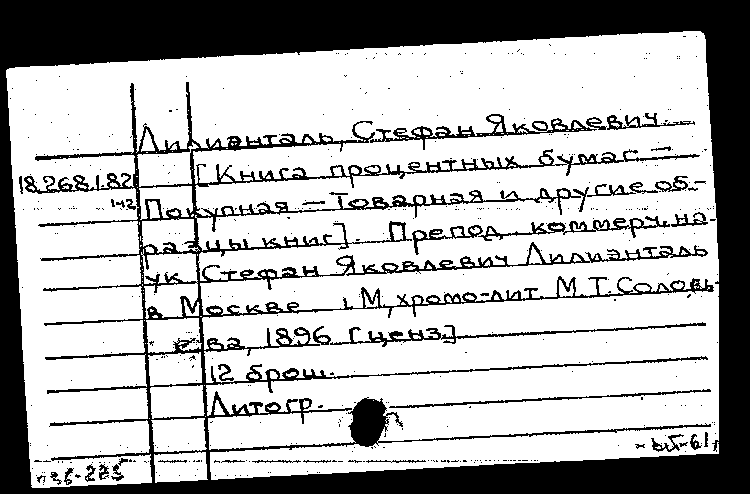 Лилианталь, Стефан Яковлевич.
18.268.1.82 [Книга процентных бумаг —
1-12 Покупная — Товарная и другие об-
разцы книг]. Препод. коммерч. на-
ук Стефан Яковлевич Лилианталь
в Москве. М., хромо-лит. М.Т. Соловь-
ева, 1896 [ценз.]
12 брош.
Литогр.